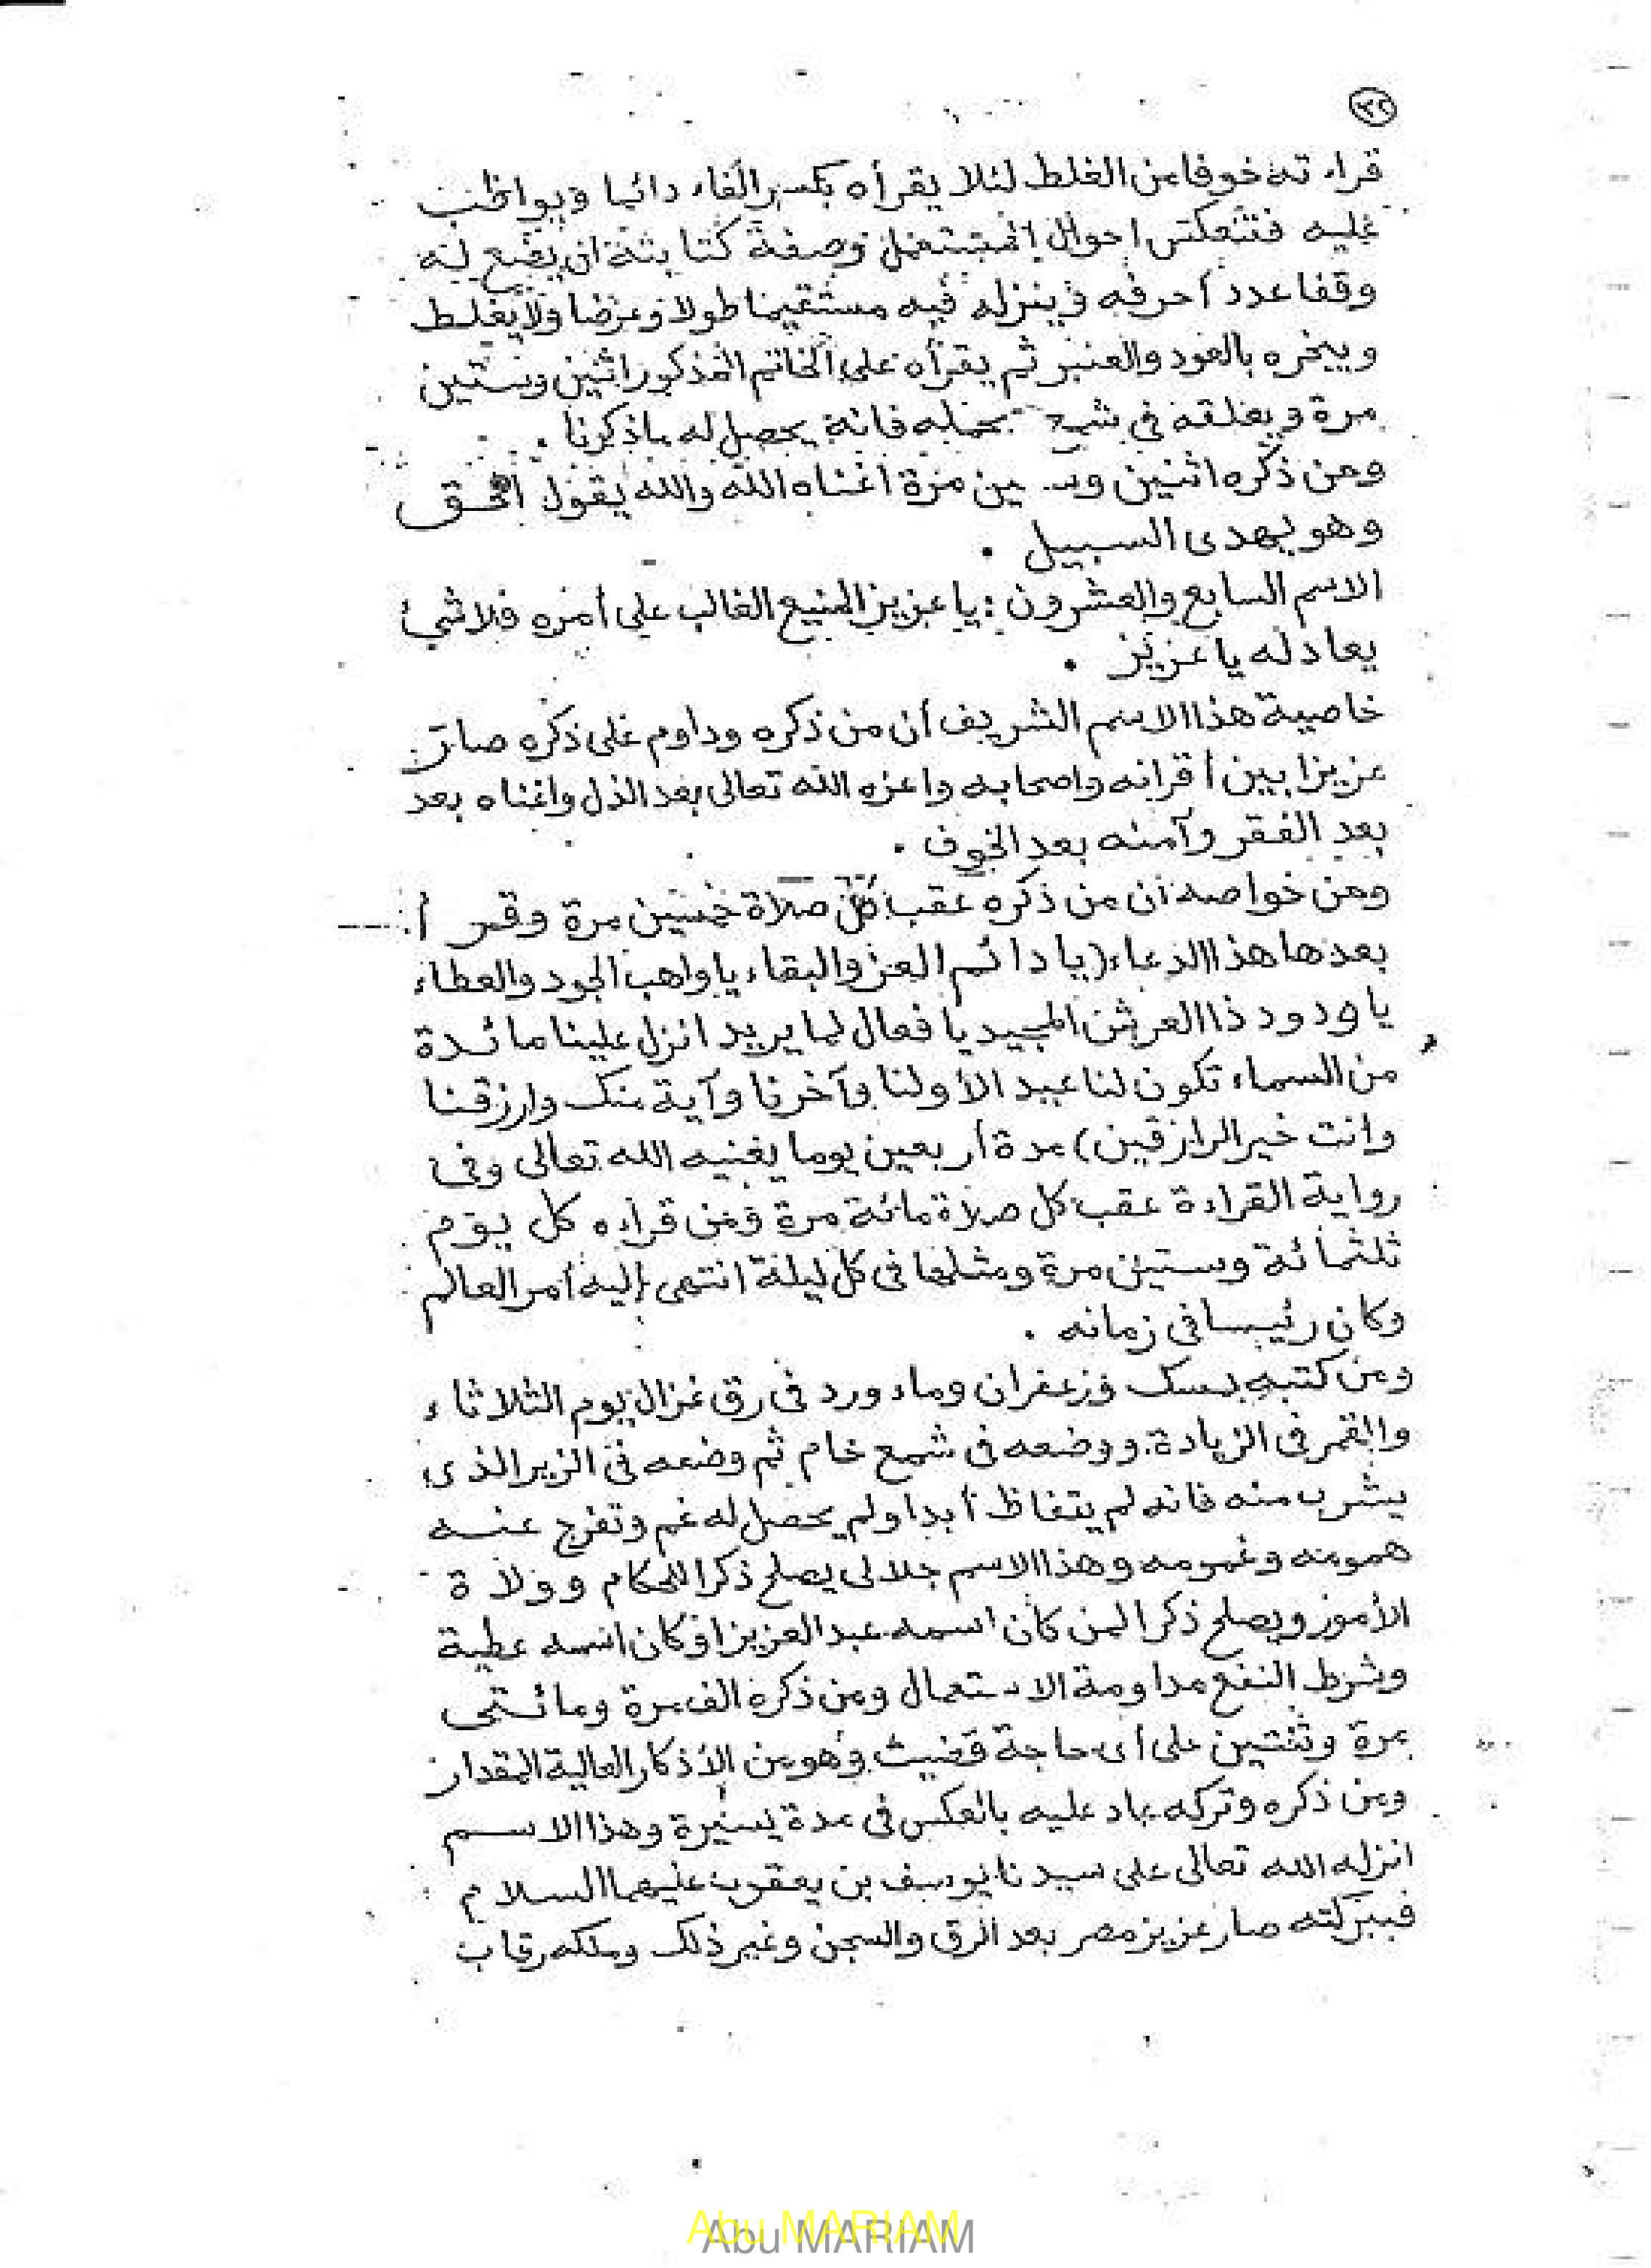 ٣٢
قراءته خوفا من الغلط لئلا يقرأه بكسر الفاء دائما ويواظب
عليه فتنعكس احوال المستعمل وصفة كتابته ان يضع له
وقفا عدد أحرفه وينزله فيه مستقيما طولا وعرضا ولا يغلط
ويبخره بالعود والعنبر ثم يقرأه على الخاتم المذكور اثنين وستين
مرة ويغلفه في شمع بحمله فانه يحصل له ماذكرنا .
ومن ذكره اثنين وستين مرة اغناه الله والله يقول الحق
وهو يهدى السبيل .
الاسم السابع والعشرون : يا عزيز المنيع الغالب على أمره فلا شئ
يعادله يا عزيز .
خاصية هذا الاسم الشريف أن من ذكره وداوم على ذكره صار
عزيزا بين أقرانه واصحابه واعزه الله تعالى بعد الذل واغناه بعد
بعد الفقر وآمنه بعد الخوف .
ومن خواصه ان من ذكره عقب كل صلاة خمسين مرة وقرأ
بعدها هذا الدعاء (يا دائم العز والبقاء يا واهب الجود والعطاء
يا ودود ذا العرش المجيد يا فعال لما يريد انزل علينا مائدة
من السماء تكون لنا عيد الأولنا وآخرنا وآية منك وارزقنا
وانت خير الرازقين) مدة أربعين يوما يغنيه الله تعالى وفى
رواية القراءة عقب كل صلاة مائة مرة ومن قرأه كل يوم
ثلثمائة وستين مرة ومثلها فى كل ليلة انتهى إليه أمر العالم
وكان رئيسا فى زمانه .
ومن كتبه بمسك وزعفران وماء ورد فى رق غزال يوم الثلاثاء
والقمر فى الزيادة ووضعه فى شمع خام ثم وضعه فى الزير الذى
يشرب منه فانه لم يتغاظ أبدا ولم يحصل له غم وتفرج عنه
همومه وغمومه وهذا الاسم جلالى يصلح ذكرا للحكام وولاة
الأمور ويصلح ذكرا لمن كان اسمه عبد العزيز او كان اسمه عطية
وشرط النفع مداومة الاستعمال ومن ذكره الف مرة ومائتى
مرة وثنتين على أى حاجة قضيت وهو من الأذكار العالية المقدار
ومن ذكره وتركه عاد عليه بالعكس فى مدة يسيرة وهذا الاسم
انزله الله تعالى على سيدنا يوسف بن يعقوب عليهما السلام
فببركته صار عزيز مصر بعد الرق والسجن وغير ذلك وملكه رقاب
Abu MARIAM
Abu MARIAM